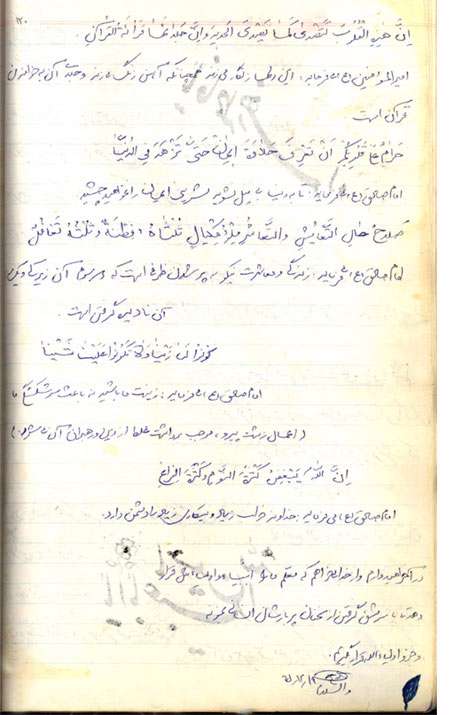 ۱۲۰
إِنَّ هذِهِ القُلُوبَ تَصْدَئُ كَمَا يَصْدَئُ الحَدِيدُ وَإِنَّ جَلاءَهَا قِرائَةُ القُرآنِ
امیرالمؤمنین (ع) می‌فرماید: این دلها زنگ می‌زند همچنانکه آهن زنگ می‌زند و جلای آن به خواندن
قرآن است
حَرامٌ عَلى قُلُوبِكُمْ اَنْ تَعْرِفَ حَلاوَةَ الايمانِ حَتّى تَزْهَدَ فِي الدُّنيا
امام صادق (ع) می‌فرماید: تا به دنیا بی میل نشوید شیرینی ایمان را نخواهید چشید
صَلاحُ حالِ التَّعايُشِ وَالتَّعاشُرِ مِلْأُ مِكْيالٍ ثُلْثاهُ فِطْنَةٌ وَثُلْثُهُ تَغافُلٌ
امام صادق (ع) می‌فرماید: زندگی و معاشرت نیکو به پر شدن ظرفی است که دو سوم آن زیرکی و یک
آن نادیده گرفتن است.
كونوا لَنا زَيْناً وَلا تَكُونُوا عَلَيْنا شَيْناً
امام صادق (ع) می‌فرماید: زینت ما باشید نه باعث سرشکستگی ما
(اعمال زشت پیرو، موجب برداشت غلط از ولی و رهبران آن می‌شود.)
إِنَّ اللّهَ يُبْغِضُ كَثْرَةَ النَّوْمِ وَكَثْرَةَ الفَراغِ
امام صادق (ع) می‌فرماید: خداوند خواب زیاد و بیکاری زیاد را دشمن دارد.
در آخر امیدوارم و از خدا میخواهم که معلم ما را انبیاء و اولیائش قرار
دهد تا با سرمشق گرفتن از سخنان پربارشان انسانی
و جزو اولیاء الله قرار گیریم.
والسلام